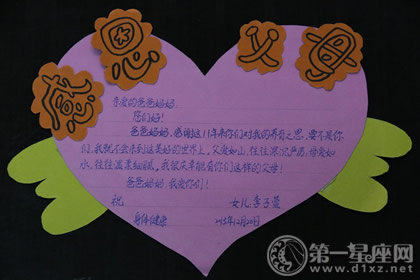 感恩父母
亲爱的爸爸妈妈:
您们好!
爸爸妈妈,感谢这11年来你们对我的养育之恩,要不是你
们,我就不会来到这美好的世界上,父爱如山,往往深沉严厉,母爱如
水,往往温柔细腻。我很庆幸能有你们这样的父母!
爸爸妈妈,我爱你们!
祝 女儿:李子萱
身体健康 12月20日
第一星座网
www.d1xz.net